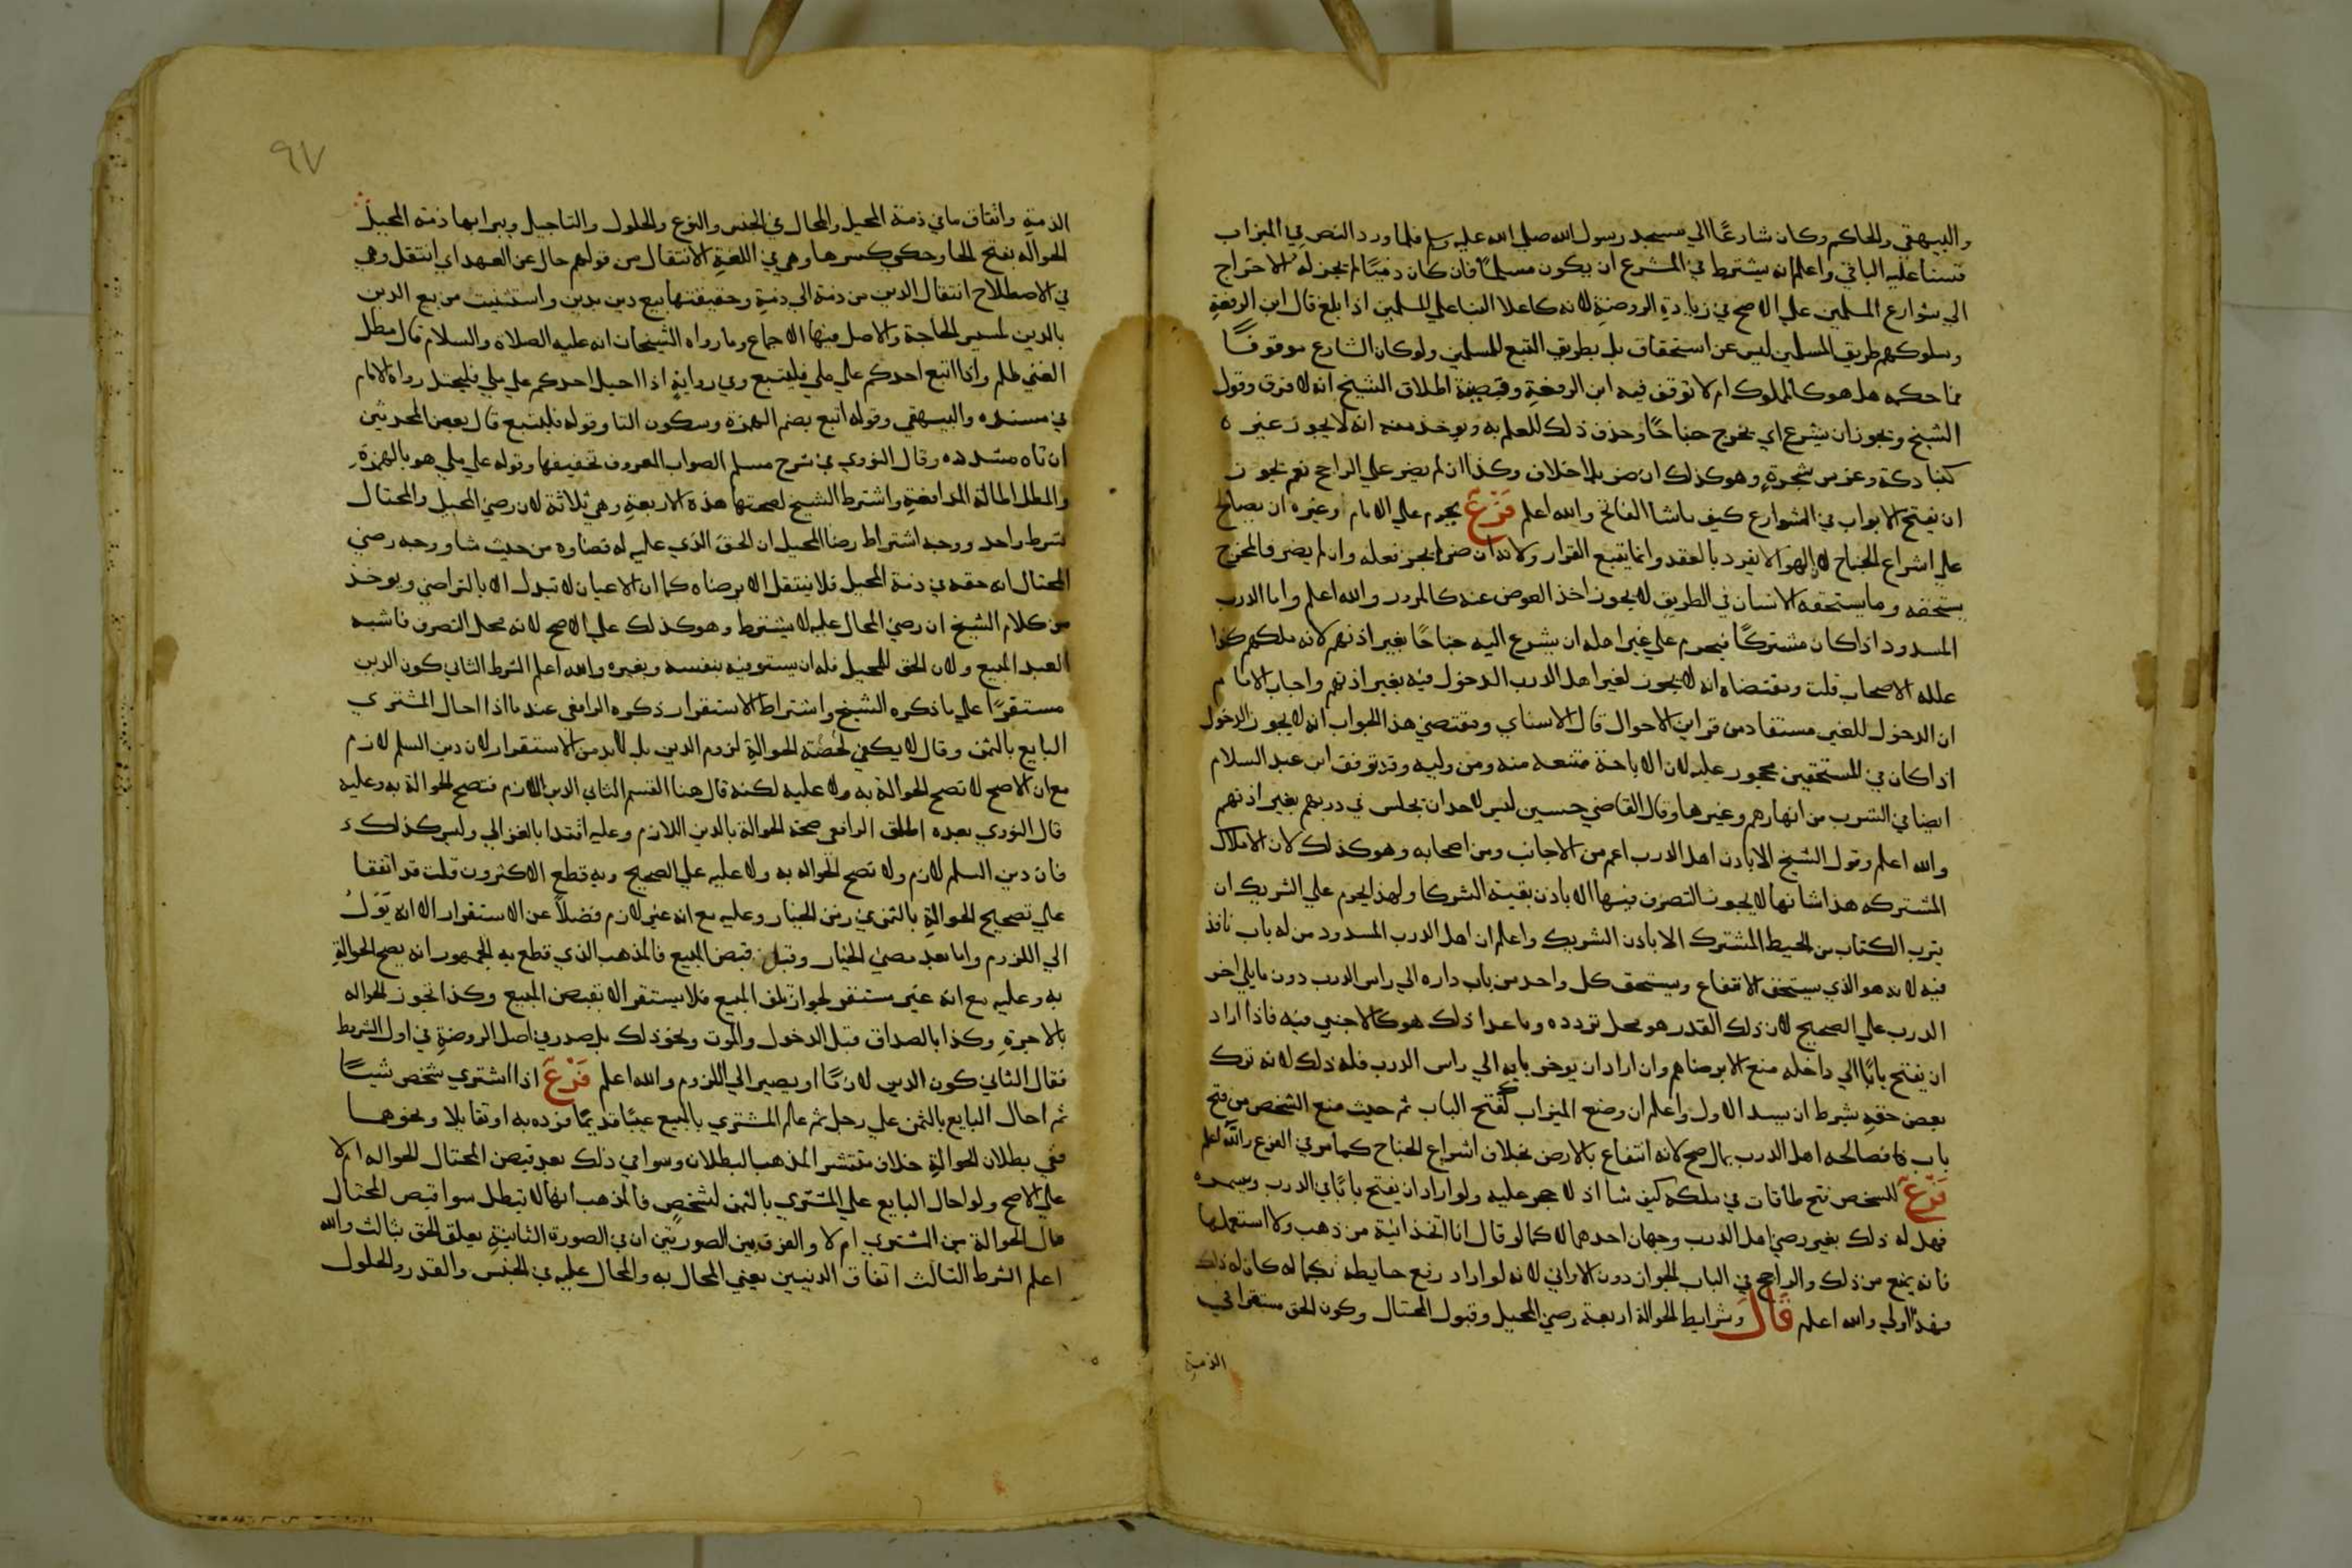 والبيهقي والحاكم وكان شارعًا الي مسجد رسول الله صلي الله عليه وسلم فلما ورد النص في الميزاب
قسنا عليه الباقي واعلم انه يشترط في المشرع ان يكون مسلمًا فان كان ذميًا لم يجز له الاخراج
الي شوارع المسلمين علي الاصح في زيادة الروضة لانه كاعلا البنا علي المسلمين اذا بلغ قال ابن الرفعة
وسلوكهم طريق المسلمين ليس عن استحقاق بل بطريق التبع للمسلمين ولو كان الشارع موقوفًا
فما حكمه هل هو كالمملوك ام لا توقف فيه ابن الرفعة وقضية اطلاق الشيخ انه لا فرق وقول
الشيخ ويجوز ان يشرع اي يخرج جناحًا وحذف ذلك للعلم به ويوخذ منه انه لا يجوز غيره
كبنا دكة وغرس شجرة وهو كذلك ان ضر بلا خلاف وكذا ان لم يضر علي الراجح نعم يجوز
ان يفتح الابواب في الشوارع كيف ماشا الفاتح والله اعلم فَرْعٌ يحرم علي الامام او غيره ان يصالح
علي اشراع الجناح لان الهوا لا يفرد بالعقد وانما يتبع القرار ولانه ان ضر لم يجز فعله وان لم يضر فالمخرج
يستحقه وما يستحقه الانسان في الطريق لا يجوز اخذ العوض عنه كالمرور والله اعلم واما الدرب
المسدود اذا كان مشتركًا فيحرم علي غير اهله ان يشرع اليه جناحًا بغير اذنهم لانه ملكهم كذا
علله الاصحاب قلت ومقتضاه انه لا يجوز لغير اهل الدرب الدخول فيه بغير اذنهم واجاب الامام
ان الدخول للغير مستفاد من قراين الاحوال قال الاسناي ومقتضي هذا الجواب انه لا يجوز الدخول
اذا كان في المستحقين محجور عليه لان الاباحة ممتنعه منه ومن وليه وقد توقف ابن عبد السلام
ايضا في الشرب من انهارهم وغيرها وقال القاضي حسين ليس لاحد ان يجلس في دربهم بغير اذنهم
والله اعلم وقول الشيخ الا باذن اهل الدرب اعم من الاجانب ومن اصحابه وهو كذلك لان الاملاك
المشتركه هذا شانها لا يجوز التصرف فيها الا باذن بقية الشركا ولهذا يحرم علي الشريك ان
يترب الكتاب من الحيط المشترك الا باذن الشريك واعلم ان اهل الدرب المسدود من له باب نافذ
فيه لانه هو الذي يستحق الانتفاع ويستحق كل واحد من باب داره الي راس الدرب دون ما يلي اخر
الدرب علي الصحيح لان ذلك القدر هو محل تردده وما عدا ذلك هو كالاجنبي فيه فاذا اراد
ان يفتح بابًا الي داخله منع الا برضاهم وان اراد ان يوخر بابه الي راس الدرب فله ذلك لانه ترك
بعض حقه بشرط ان يسد الاول واعلم ان وضع الميزاب كفتح الباب ثم حيث منع الشخص من فتح
باب فصالحه اهل الدرب بمال صح لانه انتفاع بالارض بخلاف اشراع الجناح كما مر في الفرع والله اعلم
فَرْعٌ للشخص فتح طاقات في ملكه كيف شا اذ لا حجر عليه ولو اراد ان يفتح بابًا في الدرب ويسمره
فهل له ذلك بغير رضي اهل الدرب وجهان احدهما لا كما لو قال انا اتخذ انية من ذهب ولا استعملها
فانه يمنع من ذلك والراجح في الباب الجواز دون الاواني لانه لو اراد رفع حايطه بكماله كان له ذلك
فهذا اولي والله اعلم قَالَ وشرايط الحوالة اربعة رضي المحيل وقبول المحتال وكون الحق مستقرا في
الذمة
٩٧
الذمة واتفاق ما في ذمة المحيل والمحال في الجنس والنوع والحلول والتاجيل ويبرا بها ذمة المحيل
الحواله بفتح الحا وحكي كسرها وهي في اللغة الانتقال من قولهم حال عن العهد اي انتقل وهي
في الاصطلاح انتقال الدين من ذمة الي ذمة وحقيقتها بيع دين بدين واستثنيت من بيع الدين
بالدين لمسيس الحاجة والاصل فيها الاجماع وما رواه الشيخان انه عليه الصلاة والسلام قال مطل
الغني ظلم واذا اتبع احدكم علي ملي فليتبع وفي رواية اذا احيل احدكم علي ملي فليحتل رواه الامام
في مسنده والبيهقي وقوله اتبع بضم الهمزة وسكون التا وقوله فليتبع قال بعض المحدثين
ان تاه مشدده وقال النووي في شرح مسلم الصواب المعروف تخفيفها وقوله علي ملي هو بالهمزة
والمطل اطالة المدافعة واشترط الشيخ لصحتها هذه الاربعة وهي ثلاثة لان رضي المحيل والمحتال
شرط واحد ووجه اشتراط رضا المحيل ان الحق الذي عليه له قضاوه من حيث شا ووجه رضي
المحتال انه حقه في ذمة المحيل فلا ينتقل الا برضاه كما ان الاعيان لا تبدل الا بالتراضي ويوخذ
من كلام الشيخ ان رضي المحال عليه لا يشترط وهو كذلك علي الاصح لانه محل التصرف فاشبه
العبد المبيع ولان الحق للمحيل فله ان يستوفيه بنفسه وبغيره والله اعلم الشرط الثاني كون الدين
مستقرًا علي ما ذكره الشيخ واشتراط الاستقرار ذكره الرافعي عند ما اذا احال المشتري
البايع بالثمن وقال لا يكفي لصحة الحوالة لزوم الدين بل لابد من الاستقرار لان دين السلم لازم
مع ان الاصح لا تصح الحوالة به ولا عليه لكنه قال هنا القسم الثاني الدين اللازم فتصح الحوالة به وعليه
قال النووي بعده اطلق الرافعي صحة الحوالة بالدين اللازم وعليه اقتدا بالغزالي وليس كذلك
فان دين السلم لازم ولا تصح الحواله به ولا عليه علي الصحيح وبه قطع الاكثرون قلت قد اتفقا
علي تصحيح الحوالة بالثمن في زمن الخيار وعليه مع انه غير لازم فضلًا عن الاستقرار الا انه يَوُلُ
الي اللزوم واما بعد مضي الخيار وقبل قبض المبيع فالمذهب الذي قطع به الجمهور انه يصح الحوالة
به وعليه مع انه غير مستقر لجواز تلف المبيع فلا يستقر الا بقبض المبيع وكذا تجوز الحواله
بالاجرة وكذا بالصداق قبل الدخول والموت ونحو ذلك بل صدر في اصل الروضة في اول الشرط
فقال الثاني كون الدين لازمًا او يصير الي اللزوم والله اعلم فَرْعٌ اذا اشتري شخص شيئًا
ثم احال البايع بالثمن علي رجل ثم علم المشتري بالمبيع عيبًا قديمًا فرده به او تقايلا ونحوها
ففي بطلان الحوالة خلاف منتشر المذهب البطلان وسوا في ذلك بعد قبض المحتال الحواله ام لا
علي الاصح ولو احال البايع علي المشتري بالثمن لشخص فالمذهب انها لا تبطل سوا قبض المحتال
مال الحوالة من المشتري ام لا والفرق بين الصورتين ان في الصورة الثانية تعلق الحق بثالث والله
اعلم الشرط الثالث اتفاق الدينين يعني المحال به والمحال عليه في الجنس والقدر والحلول